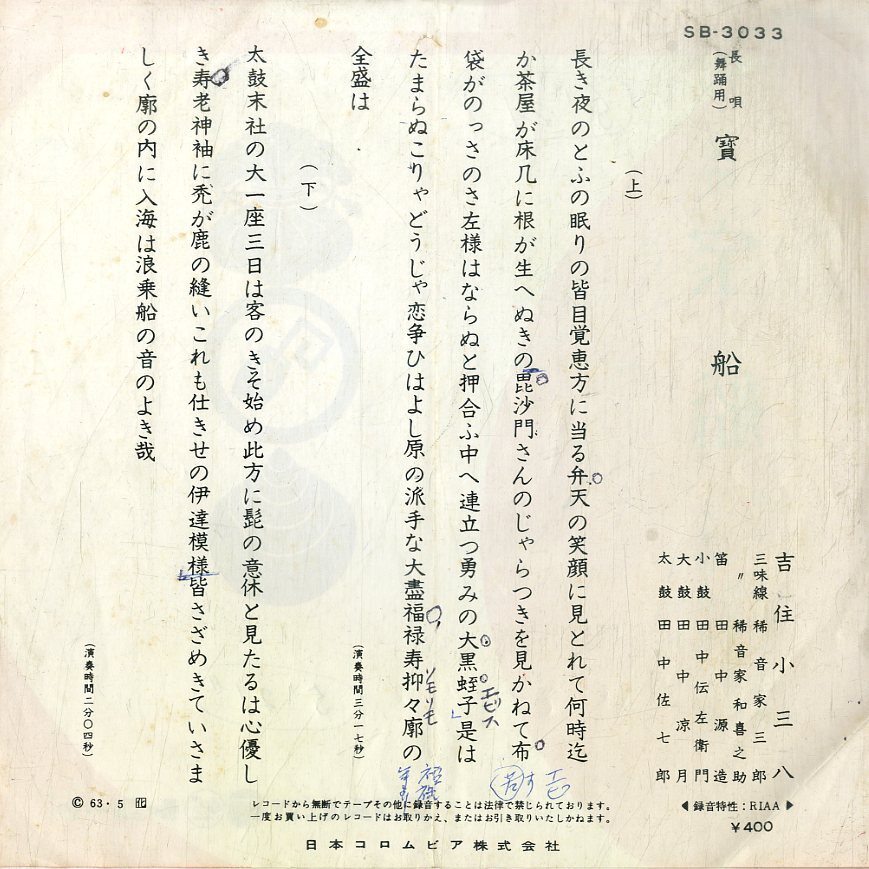 SB-3033
長唄
（舞踊用）
寳船
吉住小三八
三味線 稀音家三郎
〃 稀音家和喜之助
笛 田中源造
小鼓 田中伝左衛門
大鼓 田中凉月
太鼓 田中佐七郎
◀録音特性：RIAA▶
￥400
（上）
長き夜のとふの眠りの皆目覚恵方に当る弁天の笑顔に見とれて何時迄
か茶屋が床几に根が生へぬきの毘沙門さんのじゃらつきを見かねて布
袋がのっさのさ左様はならぬと押合ふ中へ連立つ勇みの大黒蛭子是は
エビス
たまらぬこりゃどうじゃ恋争ひはよし原の派手な大盡福禄寿抑々廓の
ソモソモ
全盛は
（演奏時間三分一七秒）
（下）
太鼓末社の大一座三日は客のきそ始め此方に髭の意休と見たるは心優し
き寿老神袖に禿が鹿の縫いこれも仕きせの伊達模様皆さざめきていさま
しく廓の内に入海は浪乗船の音のよき哉
（演奏時間二分〇四秒）
Ⓒ 63・5
レコードから無断でテープその他に録音することは法律で禁じられております。
一度お買い上げのレコードはお取りかえ、またはお引き取りいたしかねます。
日本コロムビア株式会社